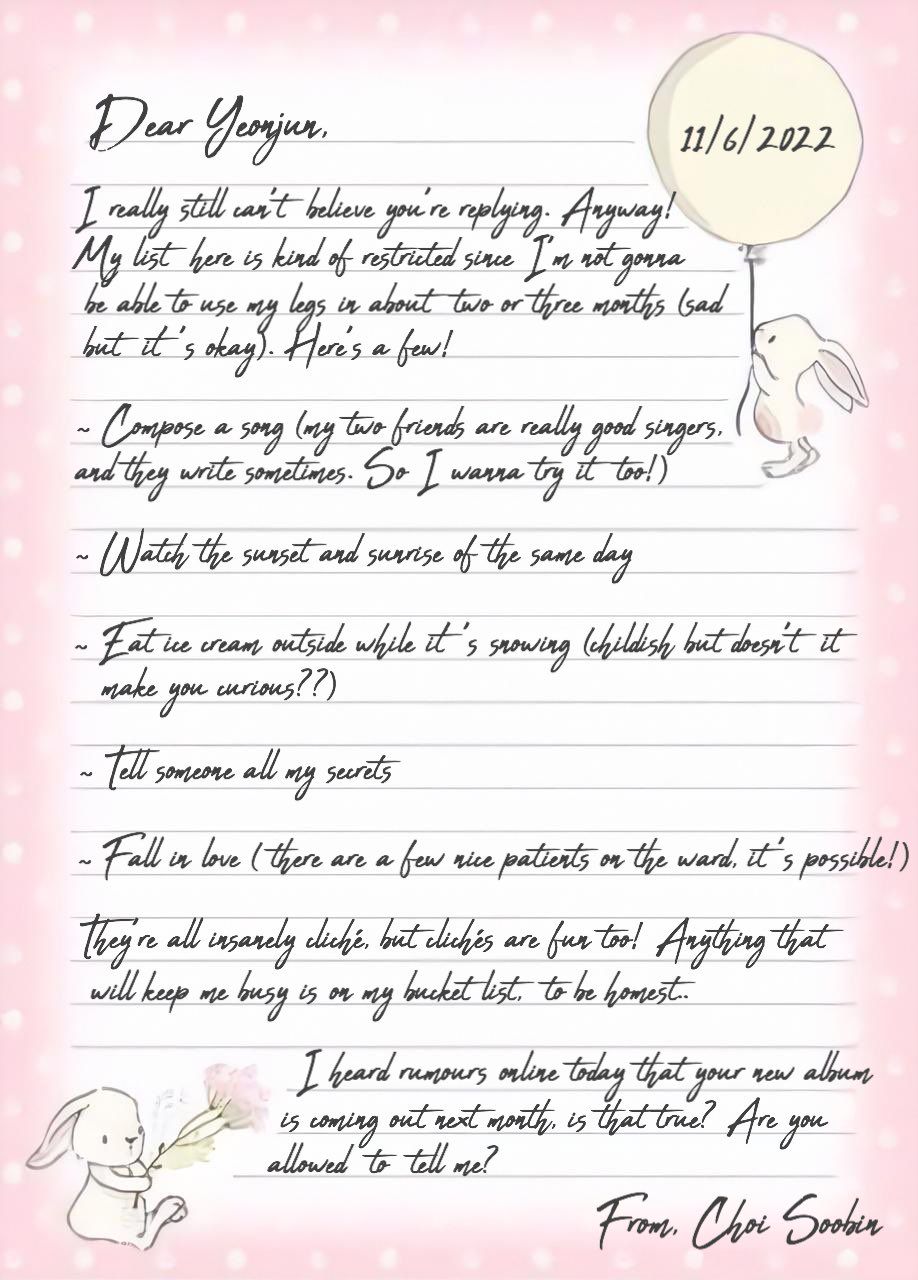 Dear Yeonjun,
11/6/2022
I really still can't believe you're replying. Anyway!
My list here is kind of restricted since I'm not gonna
be able to use my legs in about two or three months (sad
but it's okay). Here's a few!
~ Compose a song (my two friends are really good singers,
and they write sometimes. So I wanna try it too!)
~ Watch the sunset and sunrise of the same day
~ Eat ice cream outside while it's snowing (childish but doesn't it
make you curious??)
~ Tell someone all my secrets
~ Fall in love (there are a few nice patients on the ward, it's possible!)
They're all insanely cliché, but clichés are fun too! Anything that
will keep me busy is on my bucket list, to be honest..
I heard rumours online today that your new album
is coming out next month, is that true? Are you
allowed to tell me?
From, Choi Soobin